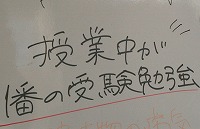 授業中が
1番の受験勉強